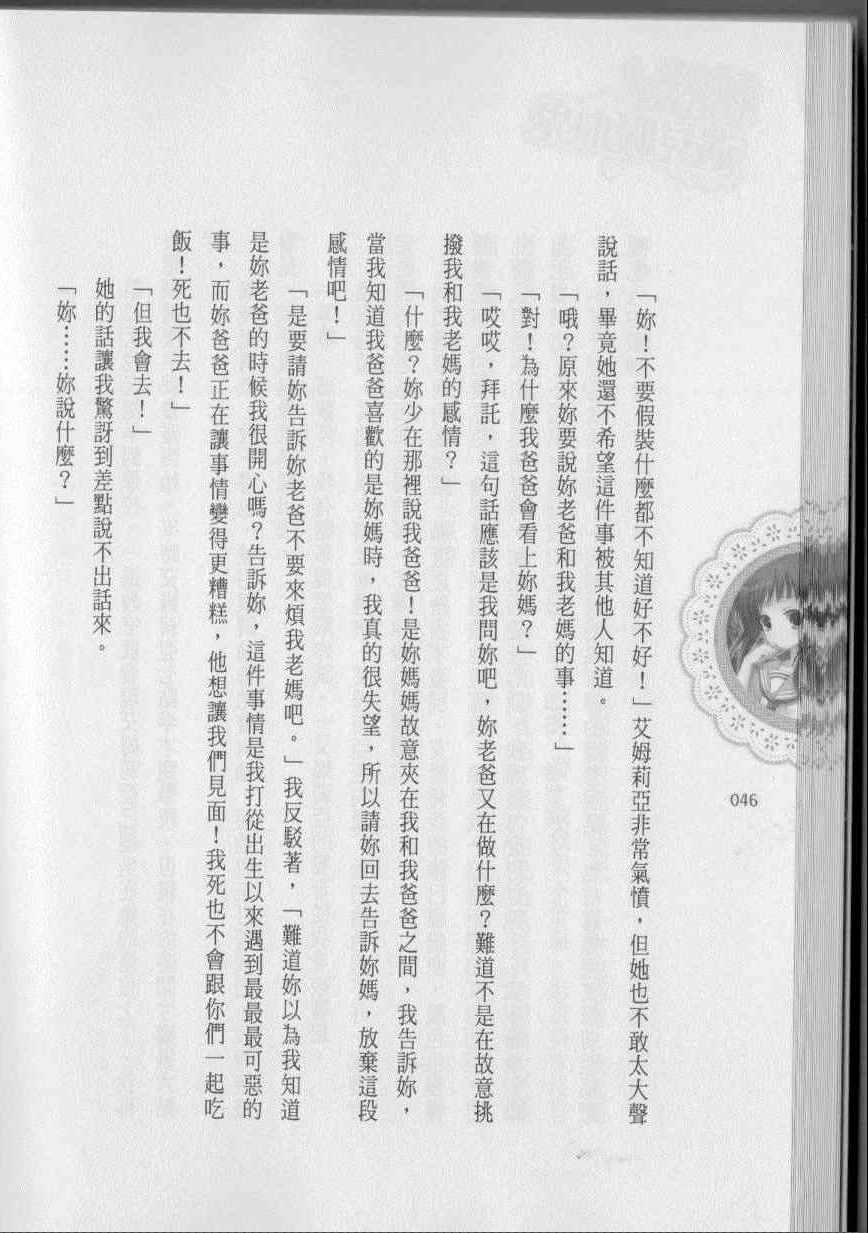 「妳！不要假裝什麼都不知道好不好！」艾姆莉亞非常氣憤，但她也不敢太大聲
說話，畢竟她還不希望這件事被其他人知道。
「哦？原來妳要說妳老爸和我老媽的事……」
「對！為什麼我爸爸會看上妳媽？」
「哎哎，拜託，這句話應該是我問妳吧，妳老爸又在做什麼？難道不是在故意挑
撥我和我老媽的感情？」
「什麼？妳少在那裡說我爸爸！是妳媽媽故意夾在我和我爸爸之間，我告訴妳，
當我知道我爸爸喜歡的是妳媽時，我真的很失望，所以請妳回去告訴妳媽，放棄這段
感情吧！」
「是要請妳告訴妳老爸不要來煩我老媽吧。」我反駁著，「難道妳以為我知道
是妳老爸的時候我很開心嗎？告訴妳，這件事情是我打從出生以來遇到最最最可惡的
事，而妳爸爸正在讓事情變得更糟糕，他想讓我們見面！我死也不會跟你們一起吃
飯！死也不去！」
「但我會去！」
她的話讓我驚訝到差點說不出話來。
「妳……妳說什麼？」
046